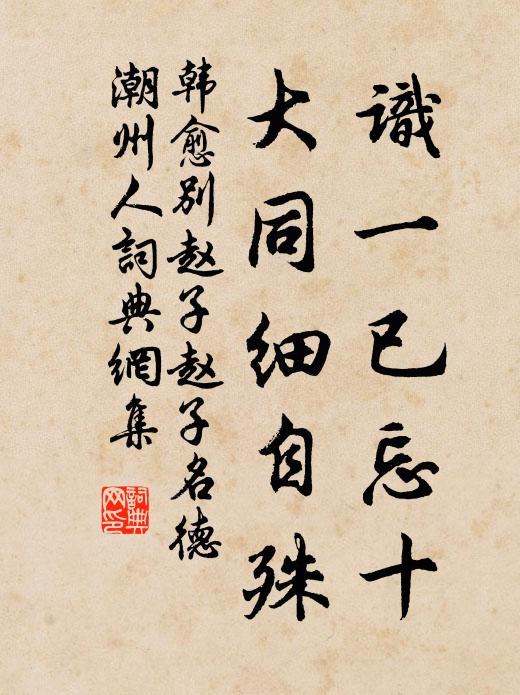 識一已忘十
大同細自殊
韩愈别赵子赵子名德
潮州人詞典網集
詞典网印